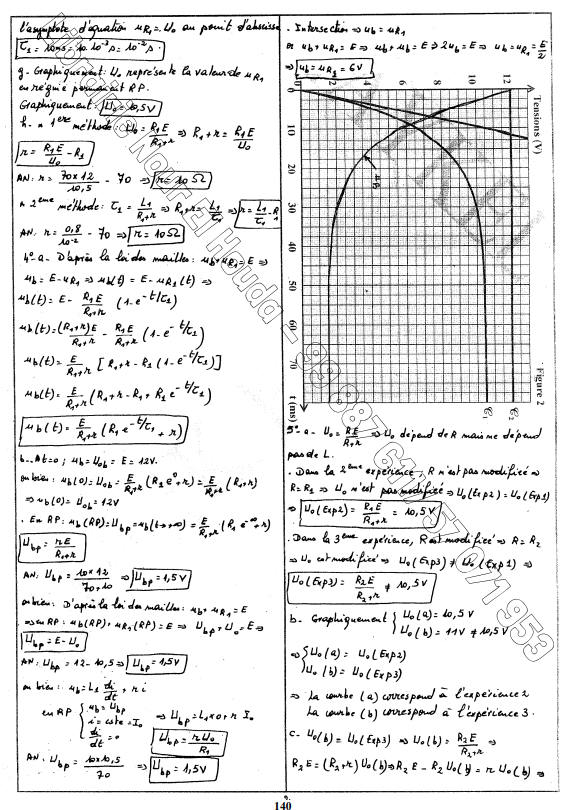 l'asymptote d'équation uR1 = U0 au point d'abscisse
τ1 = 10ms = 10.10⁻³s = 10⁻²s.
g- Graphiquement: U0 représente la valeur de uR1
en régime permanent RP.
Graphiquement: U0 = 10,5V
h- * 1ère méthode: U0 = R1E/(R1+r) ⇒ R1+r = R1E/U0
r = R1E/U0 - R1
AN: r = 70×12/10,5 - 70 ⇒ r = 10Ω
* 2ème méthode: τ1 = L1/(R1+r) ⇒ R1+r = L1/τ1 ⇒ r = L1/τ1 - R1
AN: r = 0,8/10⁻² - 70 ⇒ r = 10Ω
4°- a- D'après la loi des mailles: ub + uR1 = E ⇒
ub = E - uR1 ⇒ ub(t) = E - uR1(t) ⇒
ub(t) = E - R1E/(R1+r) (1-e^-t/τ1)
ub(t) = (R1+r)E/(R1+r) - R1E/(R1+r) (1-e^-t/τ1)
ub(t) = E/(R1+r) [R1+r-R1(1-e^-t/τ1)]
ub(t) = E/(R1+r) (R1+r-R1+R1e^-t/τ1)
ub(t) = E/(R1+r) (R1e^-t/τ1 + r)
b- At=0; ub = U0b = E = 12V.
ou bien: ub(0) = U0b = E/(R1+r) (R1e⁰+r) = E/(R1+r) (R1+r)
⇒ ub(0) = U0b = 12V
. En RP: ub(RP) = Ubp = ub(t→+∞) = E/(R1+r) (R1e^-∞+r)
Ubp = rE/(R1+r)
AN: Ubp = 10×12/(70+10) ⇒ Ubp = 1,5V
ou bien: D'après la loi des mailles: ub + uR1 = E
⇒ en RP: ub(RP) + uR1(RP) = E ⇒ Ubp + U0 = E ⇒
Ubp = E - U0
AN: Ubp = 12 - 10,5 ⇒ Ubp = 1,5V
ou bien: ub = L1 di/dt + ri
en RP { ub = Ubp
i = cste = I0 ⇒ Ubp = L1×0 + r I0
di/dt = 0
Ubp = rU0/R1
AN: Ubp = 10×10,5/70 ⇒ Ubp = 1,5V
. Intersection ⇒ ub = uR1
or ub + uR1 = E ⇒ ub + ub = E ⇒ 2ub = E ⇒ ub = uR1 = E/2
⇒ ub = uR1 = 6V
0 2 4 6 8 10 12 Tensions (V)
0
10
20
30
40
50
60
70
uB
t (ms)
τ1 τ2
Figure 2
5°- a- U0 = RE/(R+r) ⇒ U0 dépend de R mais ne dépend
pas de L.
. Dans la 2ème expérience, R n'est pas modifiée ⇒
R = R1 ⇒ U0 n'est pas modifiée ⇒ U0(Exp2) = U0(Exp1)
⇒ U0(Exp2) = R1E/(R1+r) = 10,5V
. Dans la 3ème expérience, R est modifiée ⇒ R = R2
⇒ U0 est modifiée ⇒ U0(Exp3) ≠ U0(Exp1) ⇒
U0(Exp3) = R2E/(R2+r) ≠ 10,5V
b- Graphiquement { U0(a) = 10,5V
U0(b) = 11V ≠ 10,5V
⇒ { U0(a) = U0(Exp2)
U0(b) = U0(Exp3)
⇒ La courbe (a) correspond à l'expérience 2
La courbe (b) correspond à l'expérience 3.
c- U0(b) = U0(Exp3) ⇒ U0(b) = R2E/(R2+r) ⇒
R2E = (R2+r) U0(b) ⇒ R2E - R2U0(b) = r U0(b) ⇒
140
Librairie Nour El Houda - 99 887 611 / 57 071 953